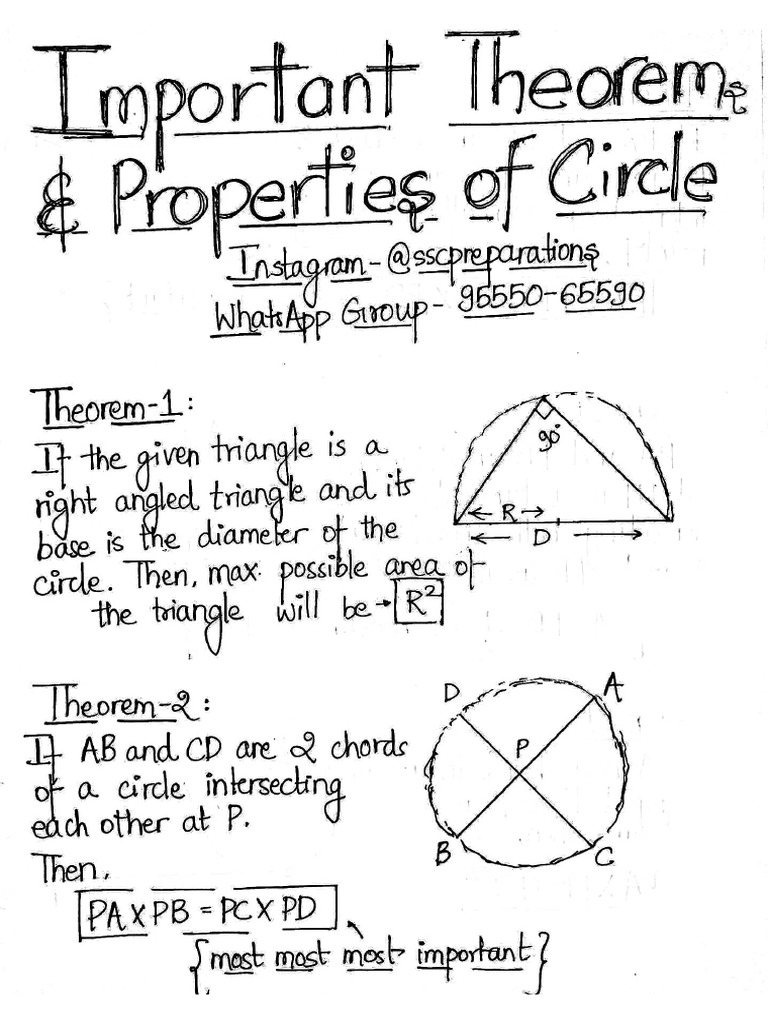 Important Theorems
& Properties of Circle
Instagram - @sscpreparations
WhatsApp Group - 95550-65590
Theorem-1:
If the given triangle is a
right angled triangle and its
base is the diameter of the
circle. Then, max. possible area of
the triangle will be → R²
90°
R
D
Theorem-2:
If AB and CD are 2 chords
of a circle intersecting
each other at P.
Then,
PA X PB = PC X PD
{most most most important}
D A
P
B C